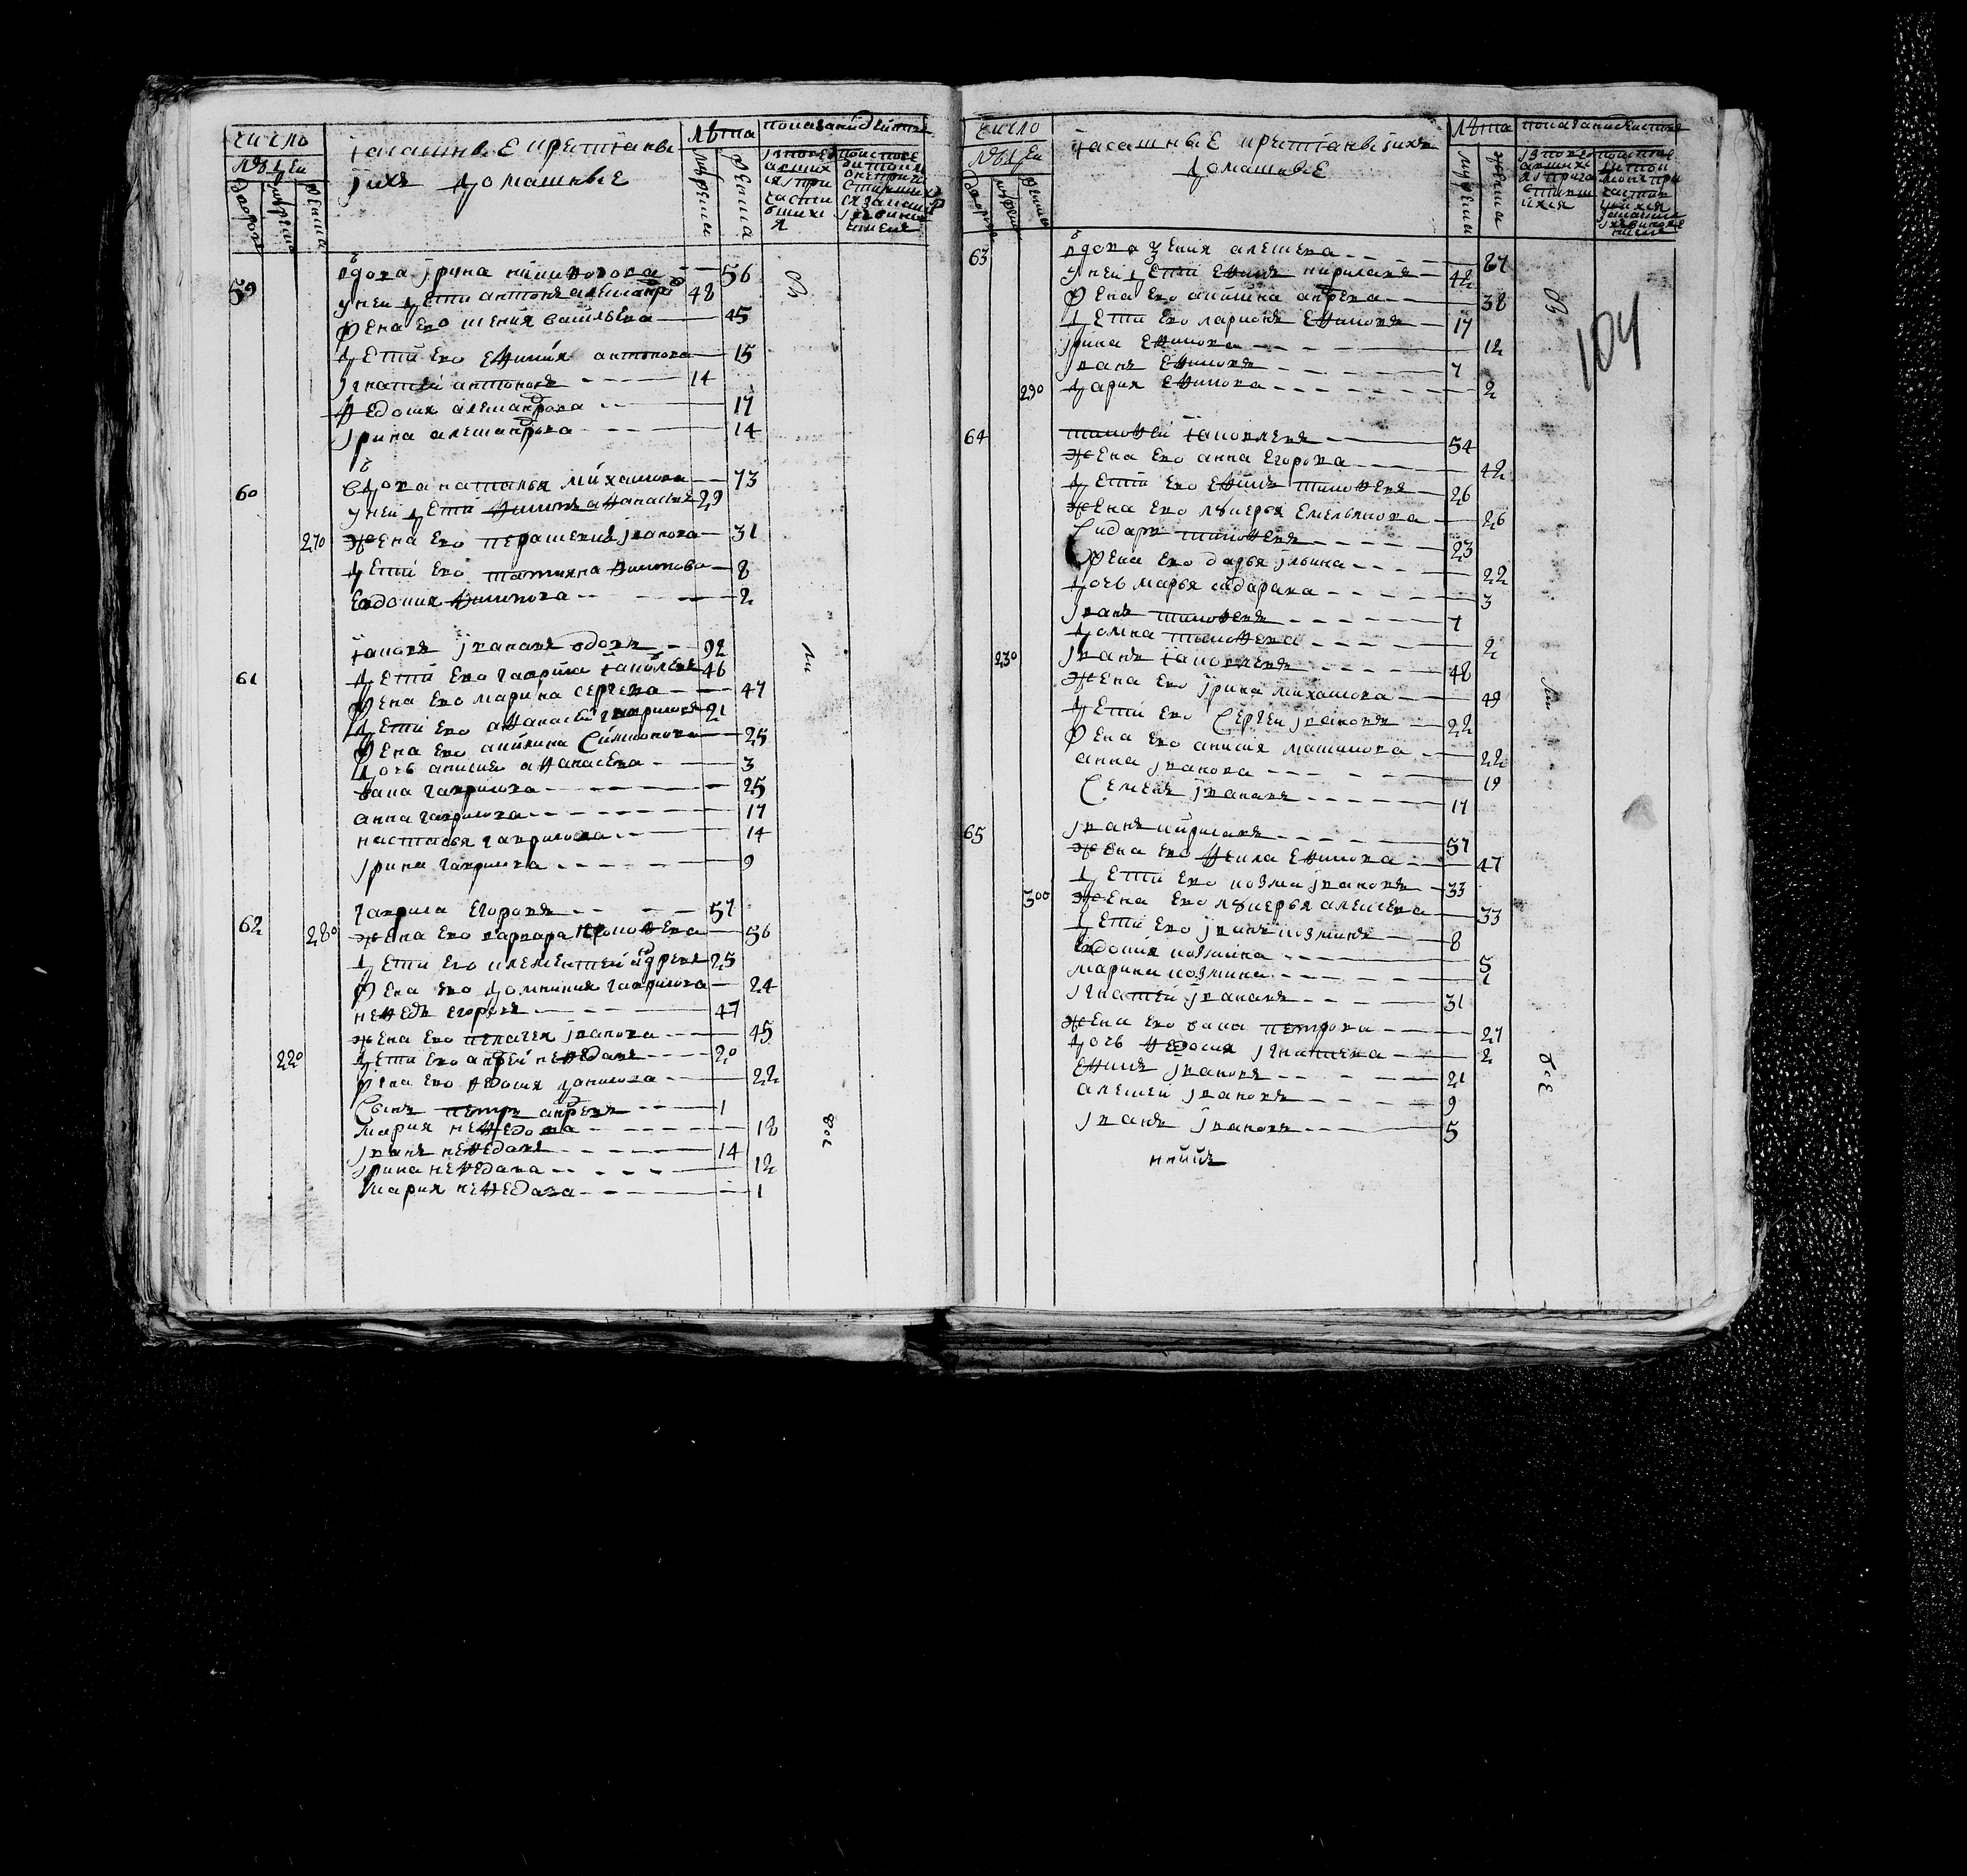 число
людей
дворовъ
мужеска
женска
ꙗсашные крестꙗне
ихъ домашные
лѣта
мужеска
женска
59 вдова ирина никифорова 56
у неи дети антонъ алеѯандровъ 48
жена ево ксения васильева 45
дети ево ефимия антонова 15
игнатей антоновъ 14
федосия алеѯандрова 17
ирина алеѯандрова 14
60 вдова наталья михаилова 73
у неи дети филипъ афанасьевъ 29
270 жена ево перасковья иванова 31
дети ево татияна филипова 8
евдокия филипова 2
61 ꙗковъ ивановъ вдовъ 92
дети ево гаврила ꙗковлевъ 46
жена ево марина сергева 47
дети ево афанасей гавриловъ 21
жена ево акилина симионова 25
дочь анисия афанасева 3
вана гаврилова 25
анна гаврилова 17
настасья гаврилова 14
ирина гаврилова 9
62 гаврила егоровъ 57
280 жена ево варвара прокофева 56
дети ево клементей андревъ 25
жена ево домникия гаврилова 24
нефедъ егоровъ 47
жена ево пелагея иванова 45
220 дети ево андрей нефедовъ 20
жена ево федосия данилова 22
сынъ петръ андревъ 1
мария нефедова 18
иванъ нефедовъ 14
ирина нефедова 12
мария нефедова 1
число
людей
дворовъ
мужеска
женска
ꙗсашные крестꙗне ихъ
домашные
лѣта
мужеска
женска
104
63 вдова ѯения алексева 87
у неи дети ефимъ кириловъ 42
жена ево акилина андрева 38
дети ево ларионъ ефимовъ 17
ирина ефимова 12
иванъ ефимовъ 7
290 дария ефимова 2
64 тимофей ꙗковлевъ 54
жена ево анна егорова 42
дети ево ефимъ тимофевъ 26
жена ево лукерья емельянова 26
сидаръ тимофевъ 23
жена ево дарья ильина 22
дочь марья сидарава 3
иванъ тимофевъ 7
домна тимофева 2
230 иванъ ꙗковлевъ 48
жена ево ирина михаилова 49
дети ево сергей ивановъ 22
жена ево анисия максимова 22
анна иванова 19
семенъ ивановъ 17
65 иванъ кириловъ 57
жена ево фекла ефимова 47
дети ево козма ивановъ 33
300 жена ево лукерья алексева 33
дети ево иванъ козминъ 8
евдокия козмина 5
марина козмина 1
игнатей ивановъ 31
жена ево вана петрова 27
дочь федосия игнатева 2
ефимъ ивановъ 21
алексей ивановъ 9
иванъ ивановъ 5